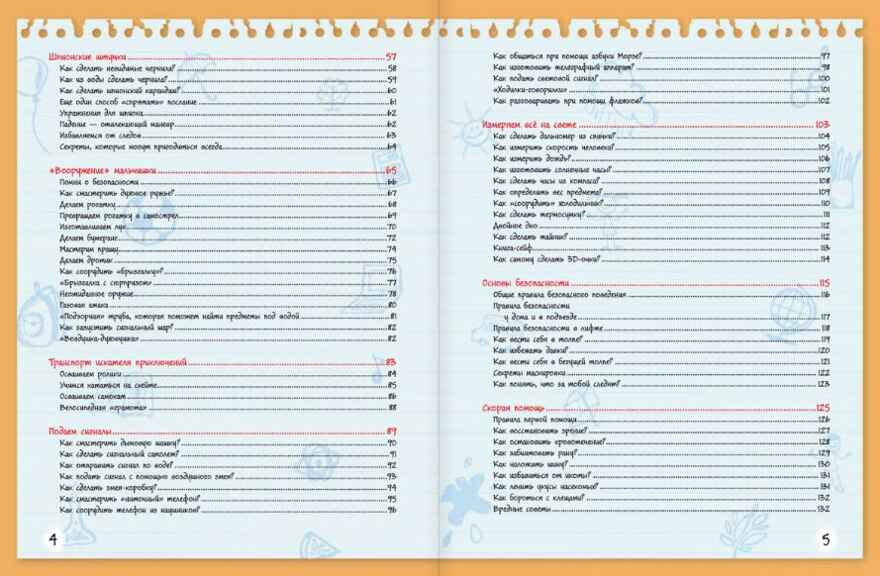 Шпионские штучки 57
Как сделать невидимые чернила? 58
Как из воды сделать чернила? 59
Как сделать шпионский карандаш? 60
Еще один способ «спрятать» послание 61
Упражнения для шпиона 62
Падение — отвлекающий маневр 62
Избавляемся от следов 63
Секреты, которые могут пригодиться всегда 64
«Вооружение» мальчишки 65
Помни о безопасности 66
Как смастерить духовое ружье? 67
Делаем рогатку 68
Превращаем рогатку в самострел 69
Изготавливаем лук 70
Делаем бумеранг 72
Мастерим пращу 74
Делаем дротик 75
Как соорудить «брызгалку»? 76
«Брызгалка с сюрпризом» 77
Неожиданное оружие 78
Газовая атака 80
«Подзорная» труба, которая поможет найти предметы под водой 81
Как запустить сигнальный шар? 82
«Воздушка-духовушка» 82
Транспорт искателя приключений 83
Осваиваем ролики 84
Учимся кататься на скейте 85
Осваиваем самокат 86
Велосипедная «грамота» 88
Подаем сигналы 89
Как смастерить дымовую шашку? 90
Как сделать сигнальный самолет? 91
Как отправить сигнал по воде? 92
Как подать сигнал с помощью воздушного змея? 93
Как сделать змея-коробку? 94
Как смастерить «ниточный» телефон? 95
Как соорудить телефон из наушников? 96
4
Как общаться при помощи азбуки Морзе? 97
Как изготовить телеграфный аппарат? 98
Как подать световой сигнал? 100
«Ходилки-говорилки» 101
Как разговаривать при помощи флажков? 102
Измеряем всё на свете 103
Как сделать дальномер из спички? 104
Как измерить скорость человека? 105
Как измерить дождь? 106
Как изготовить солнечные часы? 107
Как сделать часы из компаса? 108
Как определить вес предмета? 109
Как «соорудить» холодильник? 110
Как сделать термосумку? 111
Двойное дно 112
Как сделать тайник? 112
Книга-сейф 113
Как самому сделать 3D-очки? 114
Основы безопасности 115
Общие правила безопасного поведения 116
Правила безопасности
у дома и в подъезде 117
Правила безопасности в лифте 118
Как вести себя в толпе? 119
Как избежать давки? 120
Как вести себя в бегущей толпе? 121
Секреты маскировки 122
Как понять, что за тобой следят? 123
Скорая помощь 125
Правила первой помощи 126
Как восстановить зрение? 127
Как остановить кровотечение? 128
Как забинтовать рану? 129
Как наложить шину? 130
Как избавиться от икоты? 131
Как лечить укусы насекомых? 131
Как бороться с клещами? 132
Вредные советы 132
5